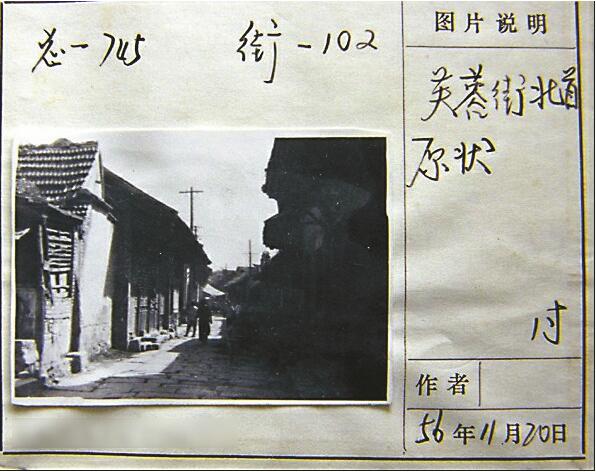 总-745 街-102
图片说明
芙蓉街北首
原状
付
作者
56年11月20日